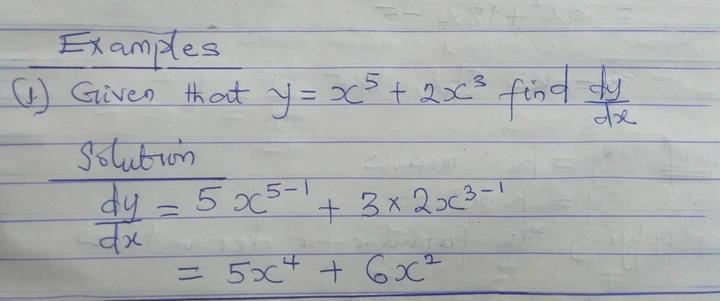 Examples
(1) Given that y = x⁵ + 2x³ find dy/dx
Solution
dy/dx = 5x⁵⁻¹ + 3 × 2x³⁻¹
= 5x⁴ + 6x²